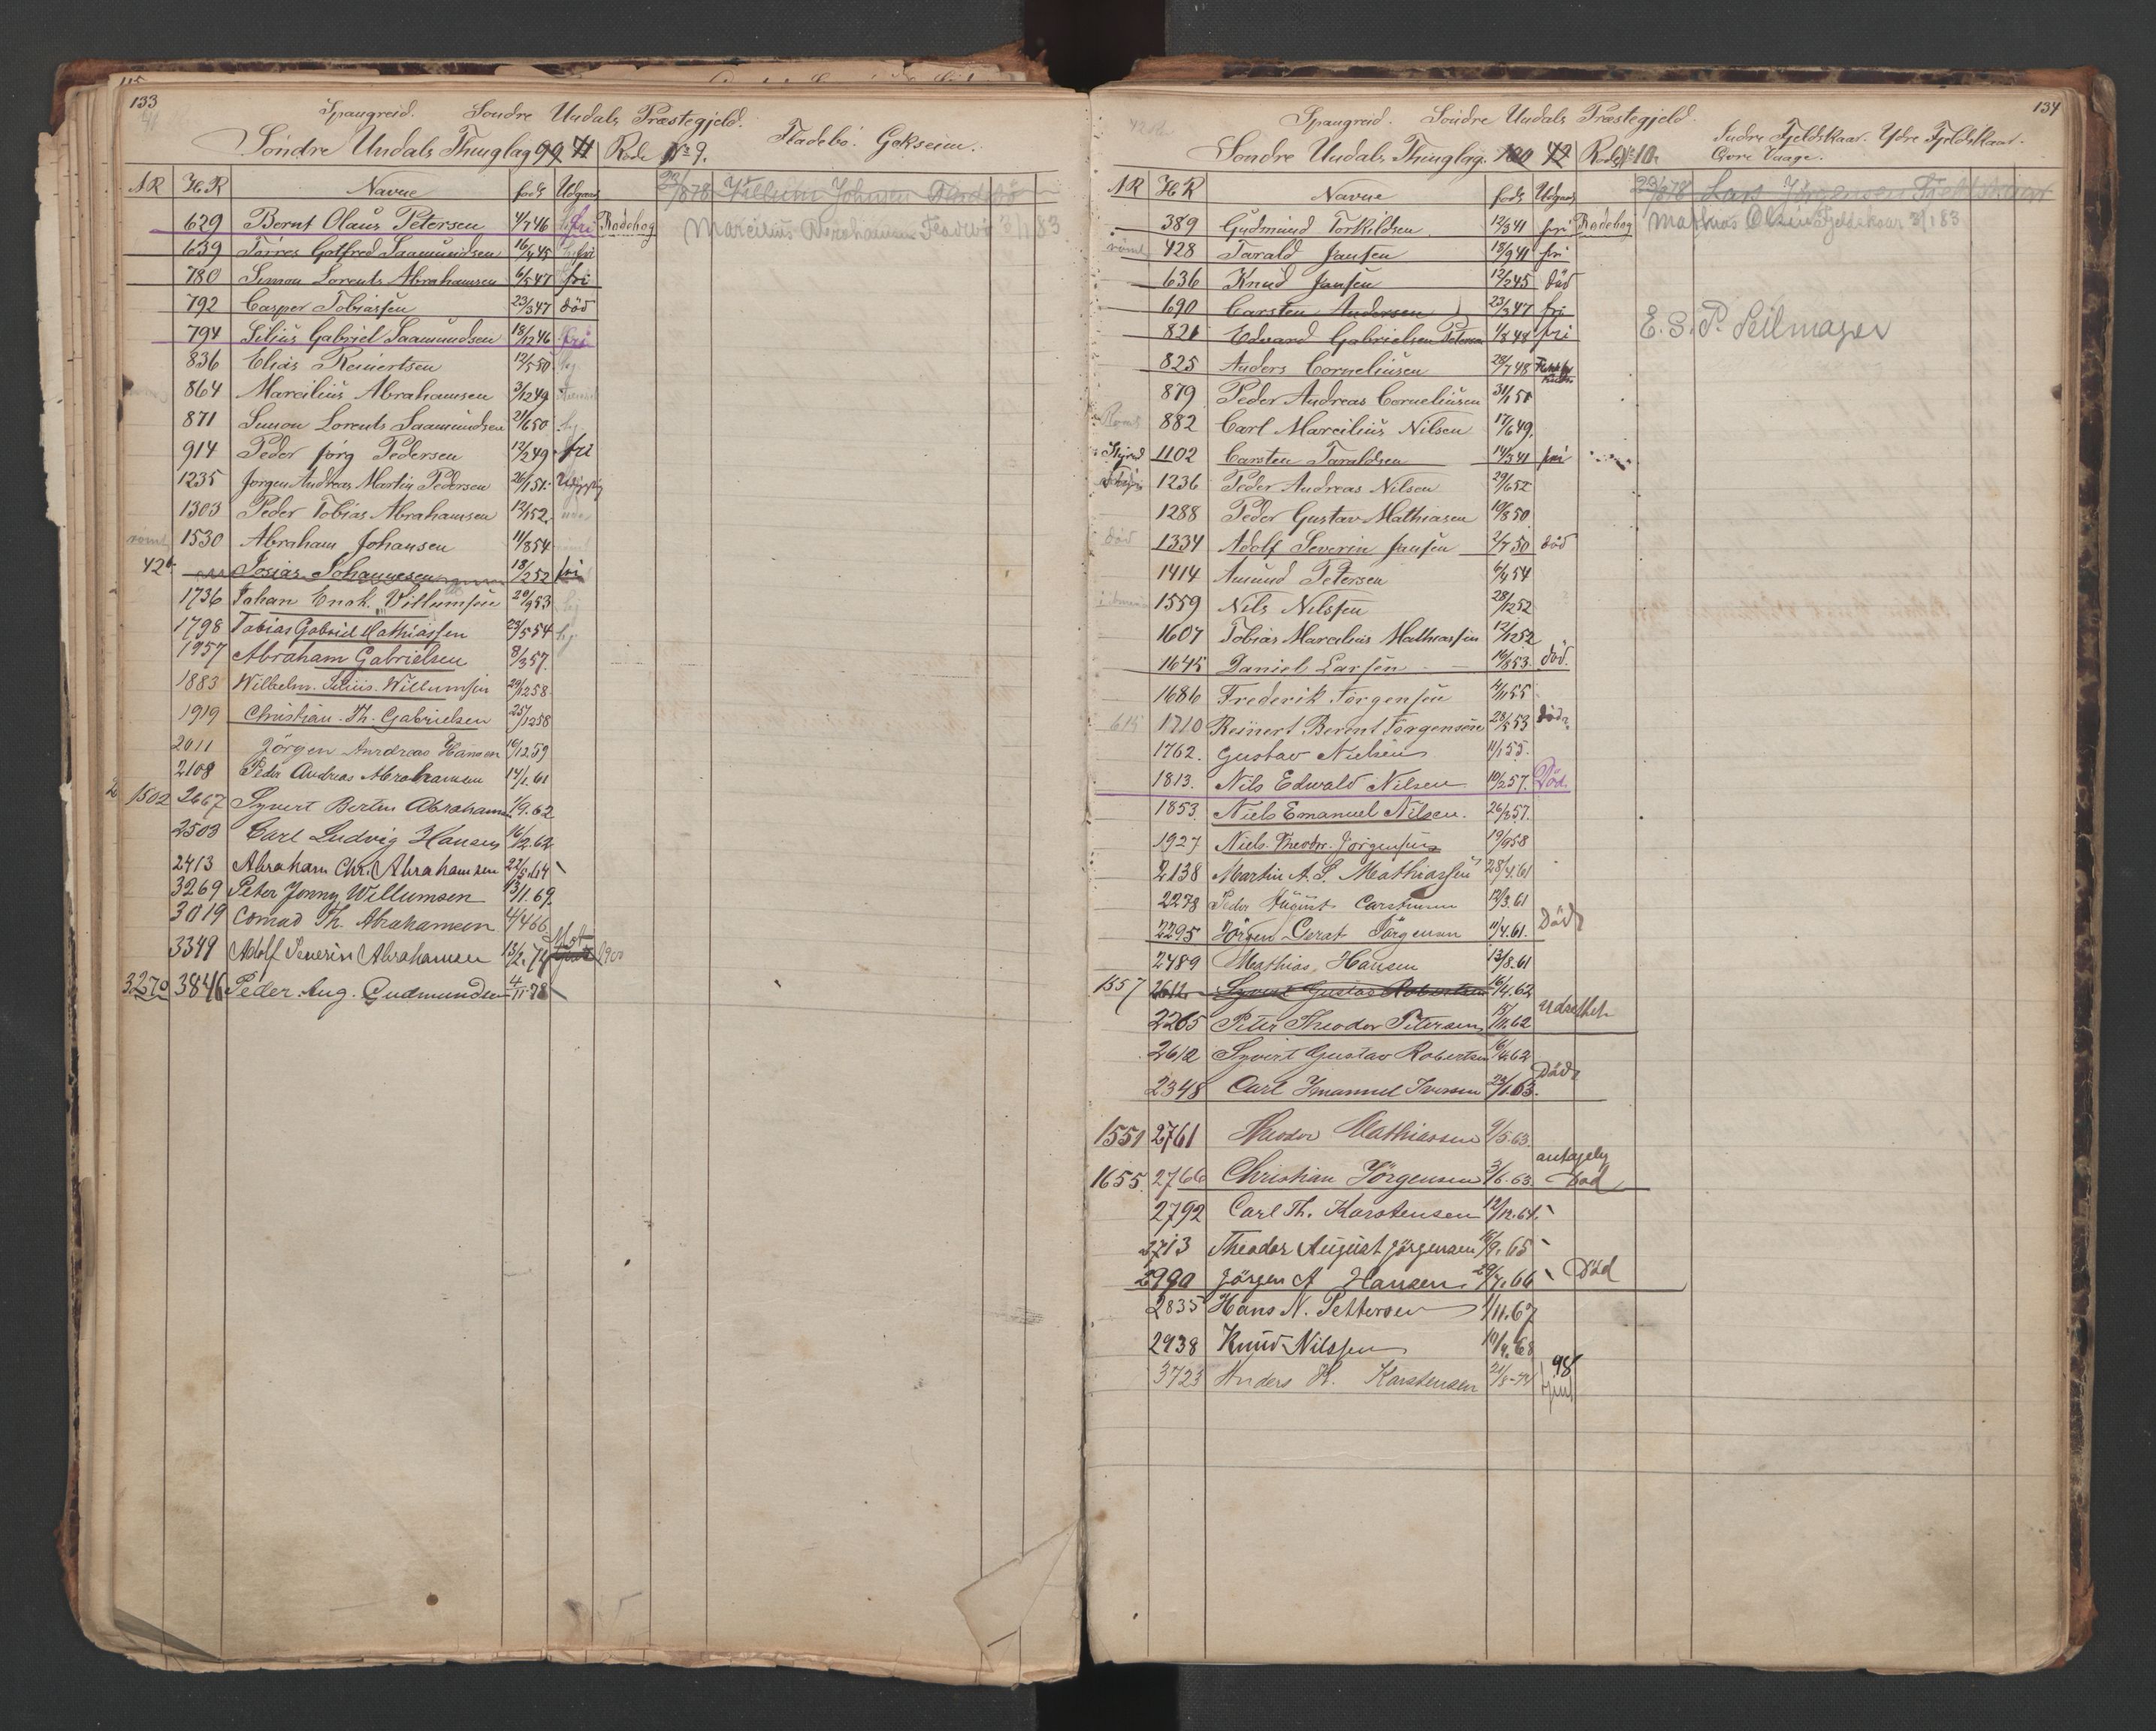 133
Spangreid. Sondre Undals Præstegjeld.
Söndre Undals Thinglag 99 41 Rode No 9. Fladebö. Gokseim.
AR HR Navne föds Udgaaet
22/878 Villum Johnsen Fladebö
629 Bernt Olaus Petersen 4/7 46 fri Rodebog Marcilius Abrahamsen Fladebö 3/1 83
639 Torres Gotfred Saamundsen 16/4 45 fri
780 Simon Lorents Abrahamsen 6/5 47 fri
792 Casper Tobiassen 23/3 47 död
794 Silius Gabriel Saamundsen 18/12 46 fri
836 Elias Reinertsen 12/5 50
864 Marcilius Abrahamsen 3/12 49
871 Simon Lorents Saamundsen 21/6 50
914 Peder Jörg Pedersen 12/2 49 fri
1235 Jörgen Andreas Martin Pedersen 26/1 51
1303 Peder Tobias Abrahamsen 12/1 52
römt 1530 Abraham Johansen 11/8 54
42 Josias Johannesen 18/2 52 fri
1736 Johan Enok Villumsen 20/9 53
1798 Tobias Gabriel Mathiassen 23/5 54
1957 Abraham Gabrielsen 8/3 57.
1883 Wilhelm. Silius. Willumsen 29/12 58
1919 Christian. Th. Gabrielsen 25/12 58
2011 Jörgen Andreas Hansen 10/12 59
2108 Peder Andreas Abrahamsen 14/1. 61
1502 2667 Syvert Bertin Abrahamsen 1/9. 62
2503 Carl Ludvig Hansen 16/2. 62
2413 Abraham Chr. Abrahamsen 22/5. 64
3269 Peter Jonny Willumsen 13/11. 69.
3019 Conrad Th. Abrahamsen 4/4 66.
3349 Adolf Severin Abrahamsen 13/2. 74 1900
3270 3846 Peder. Aug. Gudmundsen 4/11. 78
134
Spangreid. Söndre Undals Præstegjeld.
Indre Fjeldskaar. Ydre Fjeldskaar.
Sondre Undals Thinglag. 100 42 Rode No 10. Övre Vaage.
AR HR Navne föds Udgaaet
22/878 Lars Jörgensen Fjeldskaar
389 Gudmund Torkildsen 12/3 41 fri Rodebog Mathias Olsen Fjeldskaar 3/1 83
römt 428 Tarald Jansen 13/9 41 fri
636 Knud Jansen 12/2 45 död
690 Carsten Andersen 23/3 47 fri
821 Edvard Gabrielsen Petersen 1/8 48 fri E. S. P. Seilmager
825 Anders Corneliusen 28/7 48
879 Peder Andreas Corneliusen 31/1 51
Römt 882 Carl Marcilius Nilsen 17/6 49.
1102 Carsten Taraldsen 14/3 41 fri
1236 Peder Andreas Nilsen 29/6 52
1288 Peder Gustav Mathiasen 10/8 50
död 1334 Adolf Severin Jansen 2/7 50 död
1414 Amund Petersen 6/4 54
1559 Nils Nilssen 28/12 52
1607 Tobias Marcilius Mathiassen 12/12 52
1645 Daniel Larsen 16/8 53. död.
1686 Frederik Jörgensen 4/1 55
615 1710 Reinert Berent Jörgensen 28/5 53 död
1762. Gustav Nielsen 11/1 55.
1813. Nils Edwald Nilsen 10/2 57. Död.
1853. Niels Emanuel Nilsen. 26/8 57.
1927 Niels. Theodor. Jörgensen 19/9 58
2138 Martin A. S. Mathiassen 28/4. 61
2278 Peder August Carstensen 12/3. 61
2295 Jörgen Gerat Jörgensen 11/4. 61. Död
2489 Mathias Hansen 13/8. 61
1557 2612 Syvert Gustav Robertsen 16/4. 62
2265 Peter Theodor Petersen 15/11. 62 udslettet
2612 Syvert Gustav Robertsen 16/4. 62
2348 Carl Imanuel Iversen 23/1. 63. Död
1551 2761 Theodor Mathiassen 9/5. 63.
1655. 2766 Christian Jörgensen 3/6. 63. antagelig Död
2792 Carl Th. Karstensen 12/12. 64.
2713 Theodor August Jörgensen 18/9. 65
2990 Jörgen A Hansen. 29/7. 66 Död
2835 Hans N. Pettersen 1/11. 67
2938 Knud Nilssen 10/4. 68
3723 Anders K. Karstensen 21/8 - 74 98